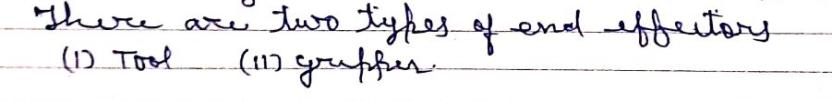 There are two types of end effectors
(I) Tool (II) gripper.